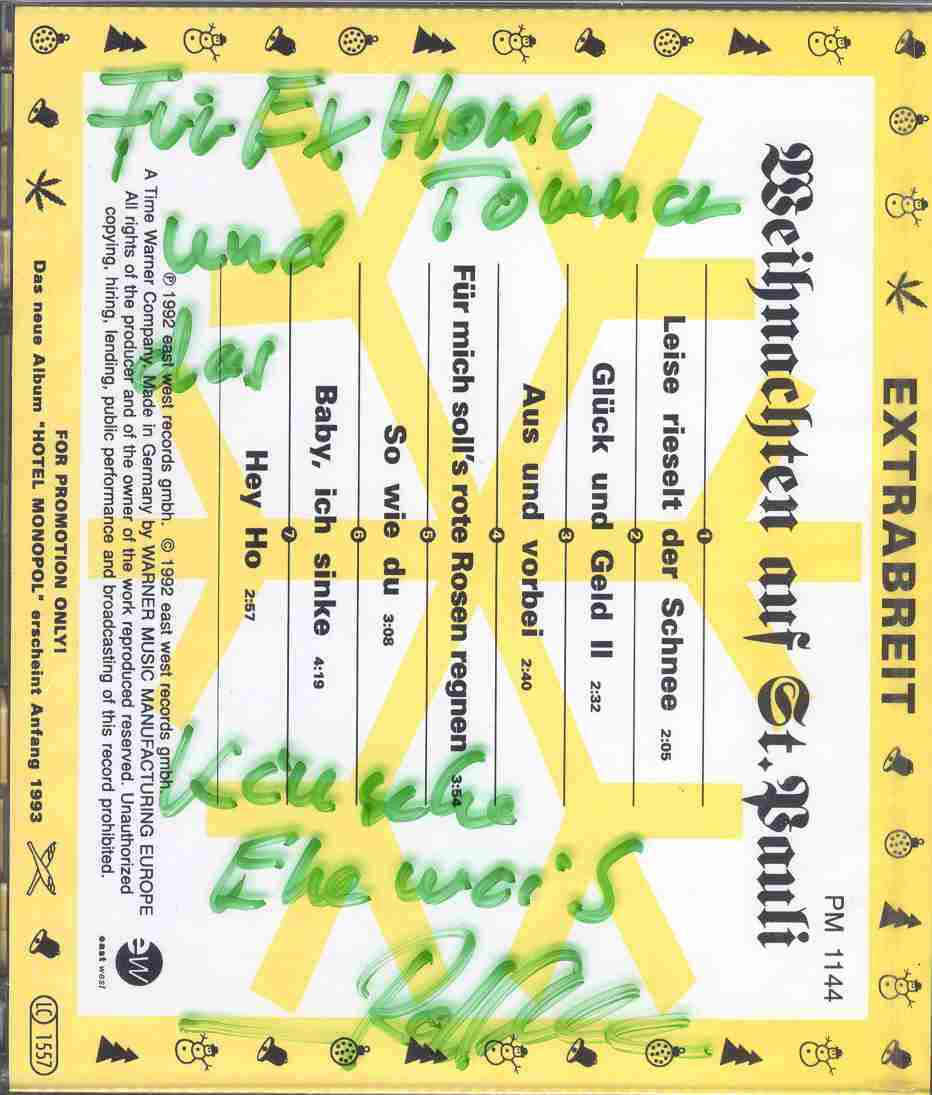 EXTRABREIT
PM 1144
Weihnachten auf St. Pauli
1
Leise rieselt der Schnee 2:05
2
Glück und Geld II 2:32
3
Aus und vorbei 2:40
4
Für mich soll's rote Rosen regnen 3:54
5
So wie du 3:08
6
Baby, ich sinke 4:19
7
Hey Ho 2:57
℗ 1992 east west records gmbh. © 1992 east west records gmbh.
A Time Warner Company. Made in Germany by WARNER MUSIC MANUFACTURING EUROPE
All rights of the producer and of the owner of the work reproduced reserved. Unauthorized
copying, hiring, lending, public performance and broadcasting of this record prohibited.
ew
east west
FOR PROMOTION ONLY!
Das neue Album "HOTEL MONOPOL" erscheint Anfang 1993
LC 1557
Für Ex Home
Towner
und
das
Keusche
Ehe